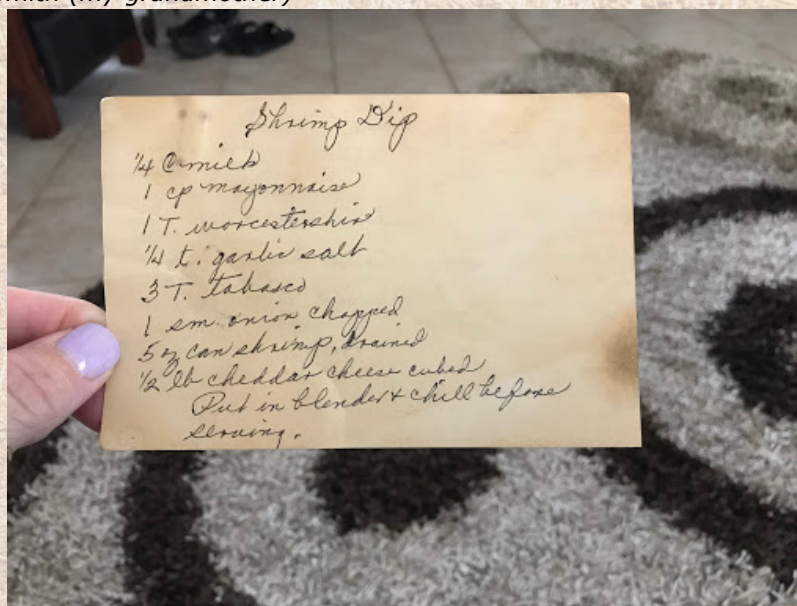 (my grandmother)
Shrimp Dip
1/4 C milk
1 cp mayonnaise
1 T. worcestershire
1/4 t. garlic salt
3 T. tabasco
1 sm. onion chopped
5 oz can shrimp, drained
1/2 lb cheddar cheese cubed
Put in blender & chill before
serving.